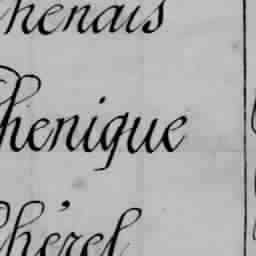 henais
Chenique
Chérel